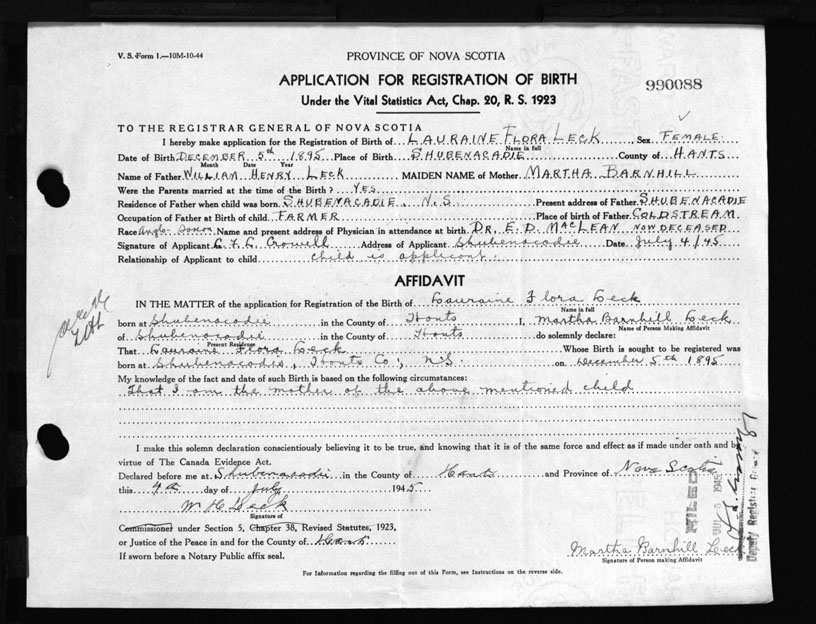 V. S. Form 1.—10M-10-44
PROVINCE OF NOVA SCOTIA
APPLICATION FOR REGISTRATION OF BIRTH
990088
Under the Vital Statistics Act, Chap. 20, R. S. 1923
TO THE REGISTRAR GENERAL OF NOVA SCOTIA
I hereby make application for the Registration of Birth of LAURAINE FLORA LECK Sex FEMALE
Name in full
Date of Birth DECEMBER 5th 1895 Place of Birth SHUBENACADIE County of HANTS
Month Date Year
Name of Father WILLIAM HENRY LECK MAIDEN NAME of Mother MARTHA BARNHILL
Were the Parents married at the time of the Birth? YES
Residence of Father when child was born SHUBENACADIE, N.S Present address of Father SHUBENACADIE
Occupation of Father at Birth of child FARMER Place of birth of Father COLDSTREAM
Race Anglo-Saxon Name and present address of Physician in attendance at birth DR. E. D. MACLEAN NOW DECEASED
Signature of Applicant L F L Crowell Address of Applicant Shubenacadie Date July 4/45
Relationship of Applicant to child child is applicant.
AFFIDAVIT
IN THE MATTER of the application for Registration of the Birth of Lauraine Flora Leck
Name in full
born at Shubenacadie in the County of Hants I, Martha Barnhill Leck
Name of Person Making Affidavit
of Shubenacadie in the County of Hants do solemnly declare:
Present Residence
That Lauraine Flora Leck Whose Birth is sought to be registered was
born at Shubenacadie, Hants Co, N.S. on December 5th 1895
My knowledge of the fact and date of such Birth is based on the following circumstances:
That I am the mother of the above mentioned child
I make this solemn declaration conscientiously believing it to be true, and knowing that it is of the same force and effect as if made under oath and by
virtue of The Canada Evidence Act.
Declared before me at Shubenacadie in the County of Hants and Province of Nova Scotia
this 4th day of July 1945
W. H. Leck
Signature of
Commissioner under Section 5, Chapter 38, Revised Statutes, 1923,
or Justice of the Peace in and for the County of Hants
If sworn before a Notary Public affix seal.
Martha Barnhill Leck
Signature of Person making Affidavit
For Information regarding the filling out of this Form, see Instructions on the reverse side.
FILED
Deputy Registrar General